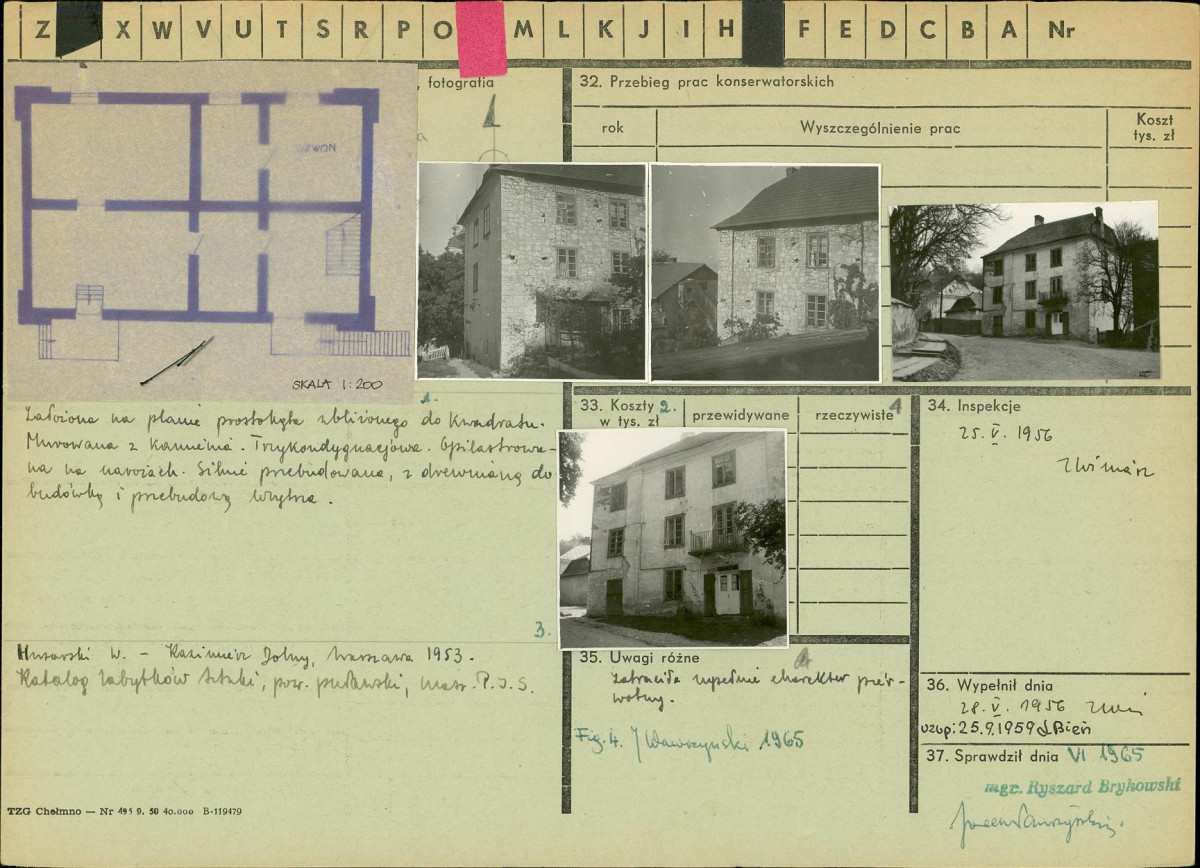 Z X W V U T S R P O M L K J I H F E D C B A Nr
, fotografia
DZWON
SKALA 1:200
32. Przebieg prac konserwatorskich
rok
Wyszczególnienie prac
Koszt
tys. zł
1.
Założona na planie prostokąta zbliżonego do kwadratu.
Murowana z kamienia. Trzykondygnacjowa. Opilastrowa-
na na narożach. Silnie przebudowana, z drewnianą do
budówką i przebudową wnętrza.
3.
Husarski W. – Kazimierz Dolny, Warszawa 1953.
Katalog Zabytków Sztuki, pow. puławski, masz. P.I.S.
TZG Chełmno — Nr 495 9. 50 40.000 B-119479
33. Koszty 2.
w tys. zł
przewidywane
rzeczywiste
4
34. Inspekcje
25.V. 1956
35. Uwagi różne
Zatraciła zupełnie charakter pier-
wotny.
Fig. 4. J Wawrzyński 1965
36. Wypełnił dnia
28.V. 1956
uzup: 25.9.1959 J.Bień
37. Sprawdził dnia VI 1965
mgr. Ryszard Brykowski